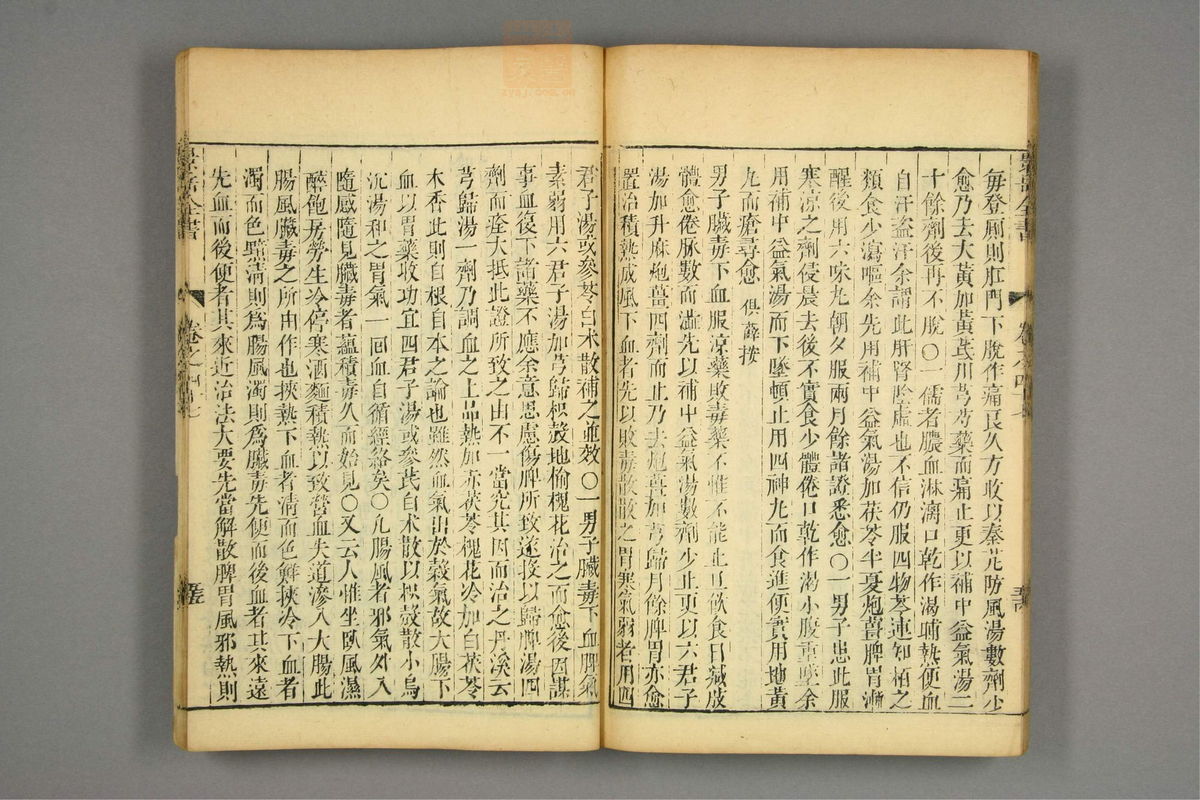 每登厠則肛門下脫作痛良久方收以秦艽防風湯數劑少
愈乃去大黃加黃芪川芎芍藥而痛止更以補中益氣湯二
十餘劑後再不脫○一儒者膿血淋漓口乾作渴晡熱便血
自汗盜汗余謂此肝腎陰虛也不信仍服四物芩連知栢之
類食少瀉嘔余先用補中益氣湯加茯苓半夏炮薑脾胃漸
醒後用六味丸朝夕服兩月餘諸證悉愈○一男子患此服
寒凉之劑侵晨去後不實食少體倦口乾作渴小腹重墜余
用補中益氣湯而下墜頓止用四神丸而食進便實用地黃
丸而瘡尋愈 俱薛按
男子臟毒下血服凉藥敗毒藥不惟不能止且飲食日減肢
體愈倦脉數而濇先以補中益氣湯數劑少止更以六君子
湯加升麻炮薑四劑而止乃去炮薑加芎歸月餘脾胃亦愈
嘗治積熱成風下血者先以敗毒散散之胃寒氣弱者用四
君子湯或參苓白术散補之並效○一男子臟毒下血脾氣
素弱用六君子湯加芎歸枳殼地榆槐花治之而愈後因謀
事血復下諸藥不應余意思慮傷脾所致遂投以歸脾湯四
劑而痊大抵此證所致之由不一當究其因而治之丹溪云
芎歸湯一劑乃調血之上品熱加赤茯苓槐花冷加白茯苓
木香此則自根自本之論也雖然血氣出於穀氣故大腸下
血以胃藥收功宜四君子湯或參芪白术散以枳殼散小烏
沉湯和之胃氣一回血自循經絡矣○凡腸風者邪氣外入
隨感隨見臟毒者蘊積毒久而始見○又云人惟坐臥風濕
醉飽房勞生冷停寒酒麵積熱以致營血失道滲入大腸此
腸風臟毒之所由作也挾熱下血者清而色鮮挾冷下血者
濁而色黯清則爲腸風濁則爲臟毒先便而後血者其來遠
先血而後便者其來近治法大要先當解散脾胃風邪熱則